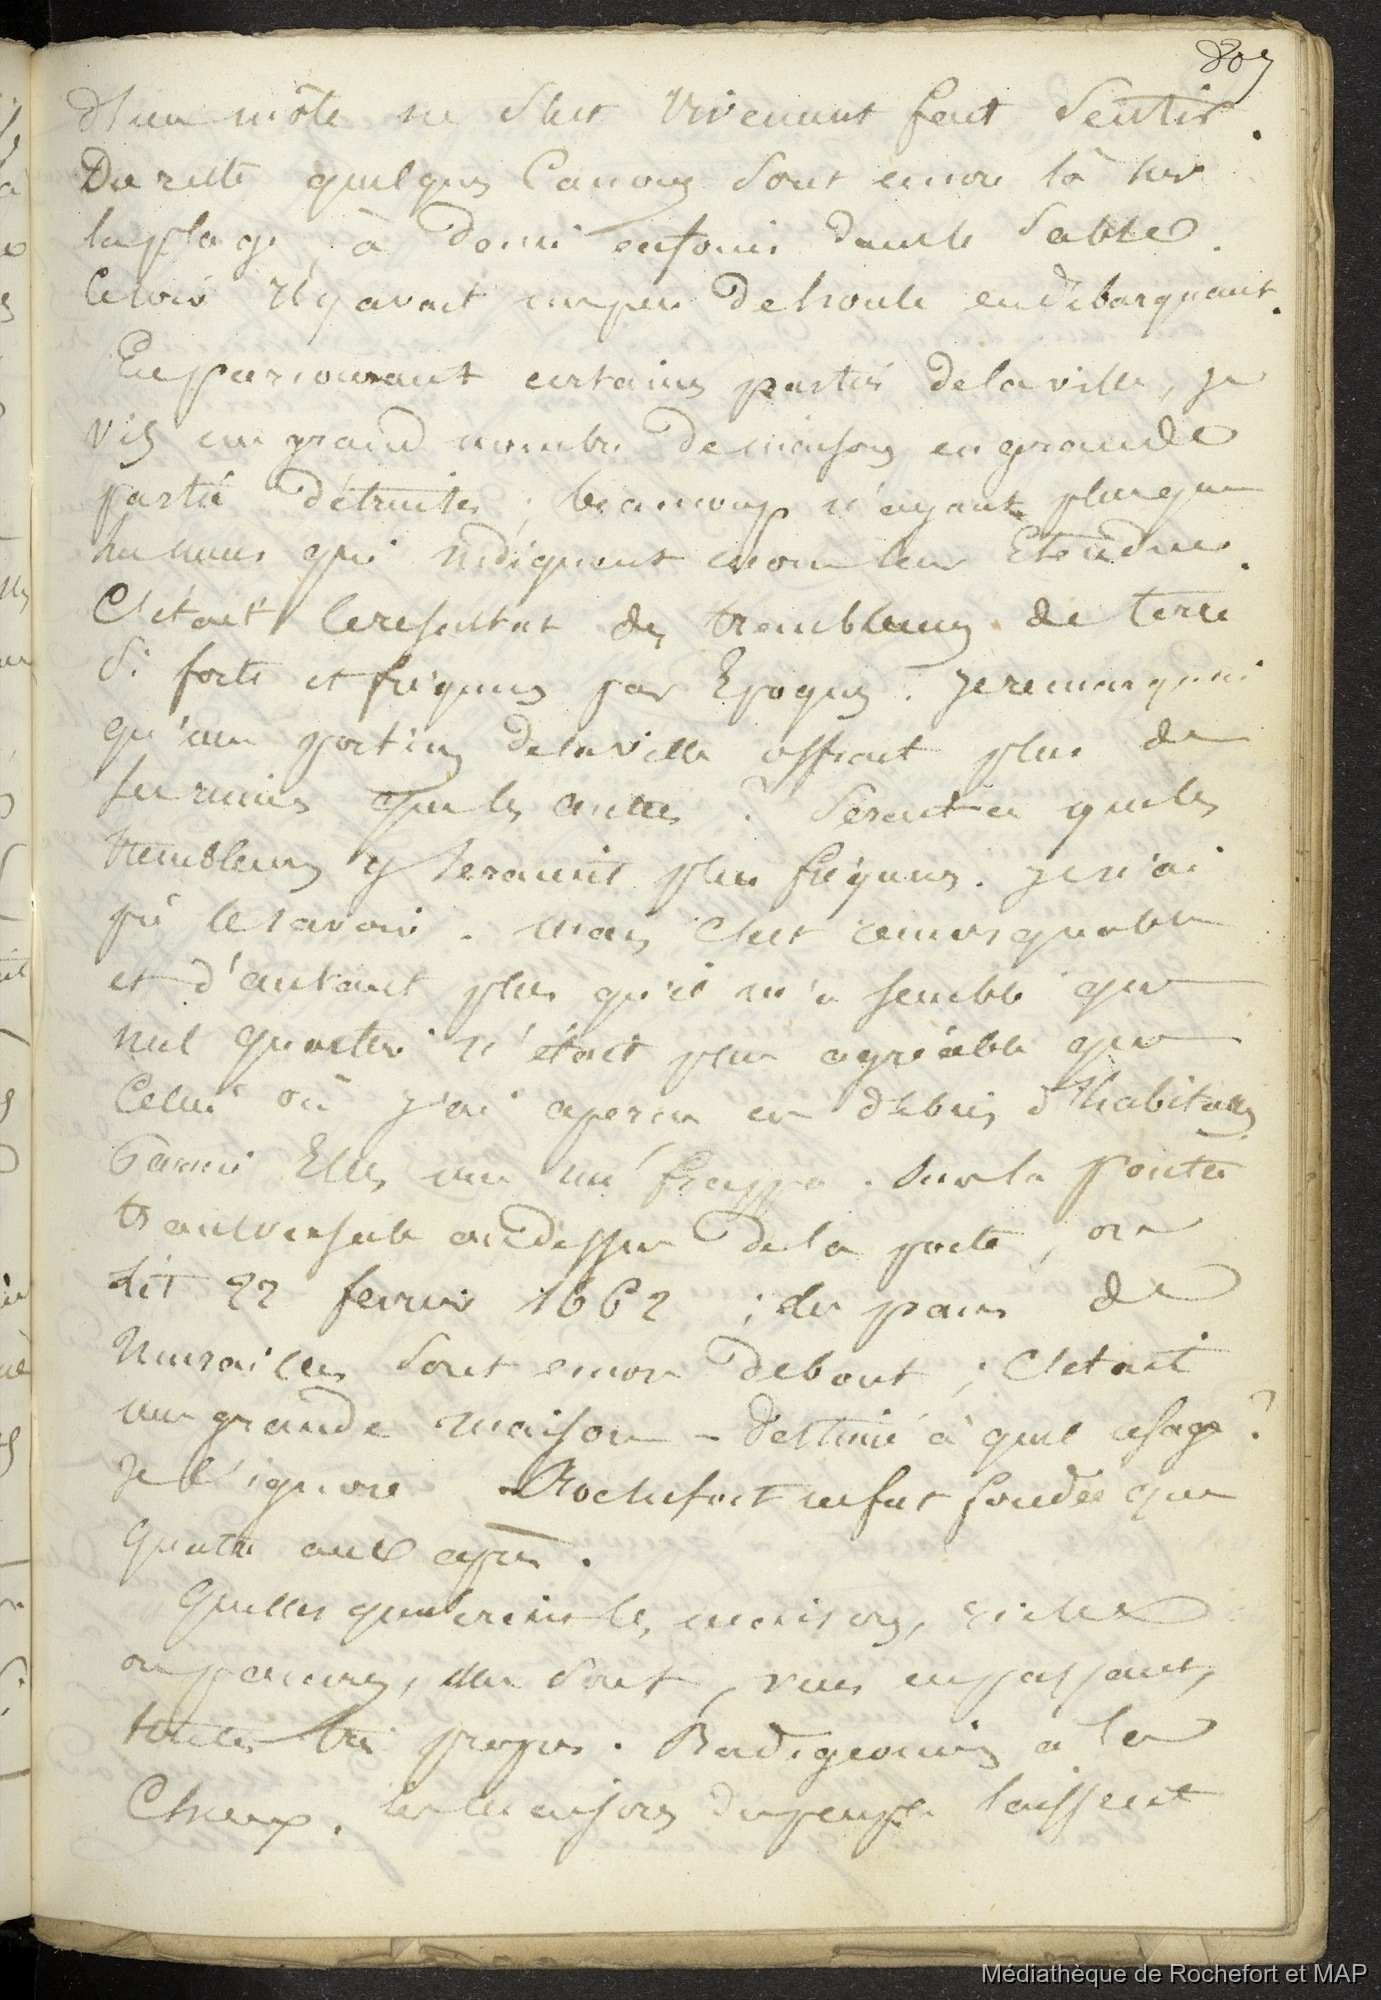 807
d'un môle ne s'est vivement fait sentir.
Du reste quelques Canons sont encore là sur
la plage, à demi enfouis dans le sable.
Ce soir Il y avait un peu de houle en débarquant.
En parcourant certaines parties de la ville, je
vis un grand nombre de maisons en grande
partie détruites ; beaucoup n'ayant plus que
les murs qui indiquent encore leur Etendue.
C'était le resultat des tremblemens de terre
Si forts et fréquens par Epoques. Je remarquai
qu'une portion de la ville offrait plus de
ses ruines que les autres ? Serait-ce que les
tremblemens y seraient plus fréquens. je n'ai
pû le savoir. mais C'est remarquable
et d'autant plus qu'il m'a semblé que
nul quartier n'était plus agréable que
Celui où j'ai aperçu ces débris d'habitations
Parmi Elles une m'a frappé. Sur la poutre
transversale au dessus de la porte, on
lit 22 fevrier 1662 ; des pans de
Murailles sont encore debout ; C'était
une grande maison - destinée à quel usage ?
Je l'ignore. Rochefort ne fut fondée que
quatre ans après.
Quelles que soient les maisons, riches
ou pauvres, elles sont, vues en passant,
toutes très propres. Badigeonnées à la
Chaux. les maisons du peuple laissent
Médiathèque de Rochefort et MAP